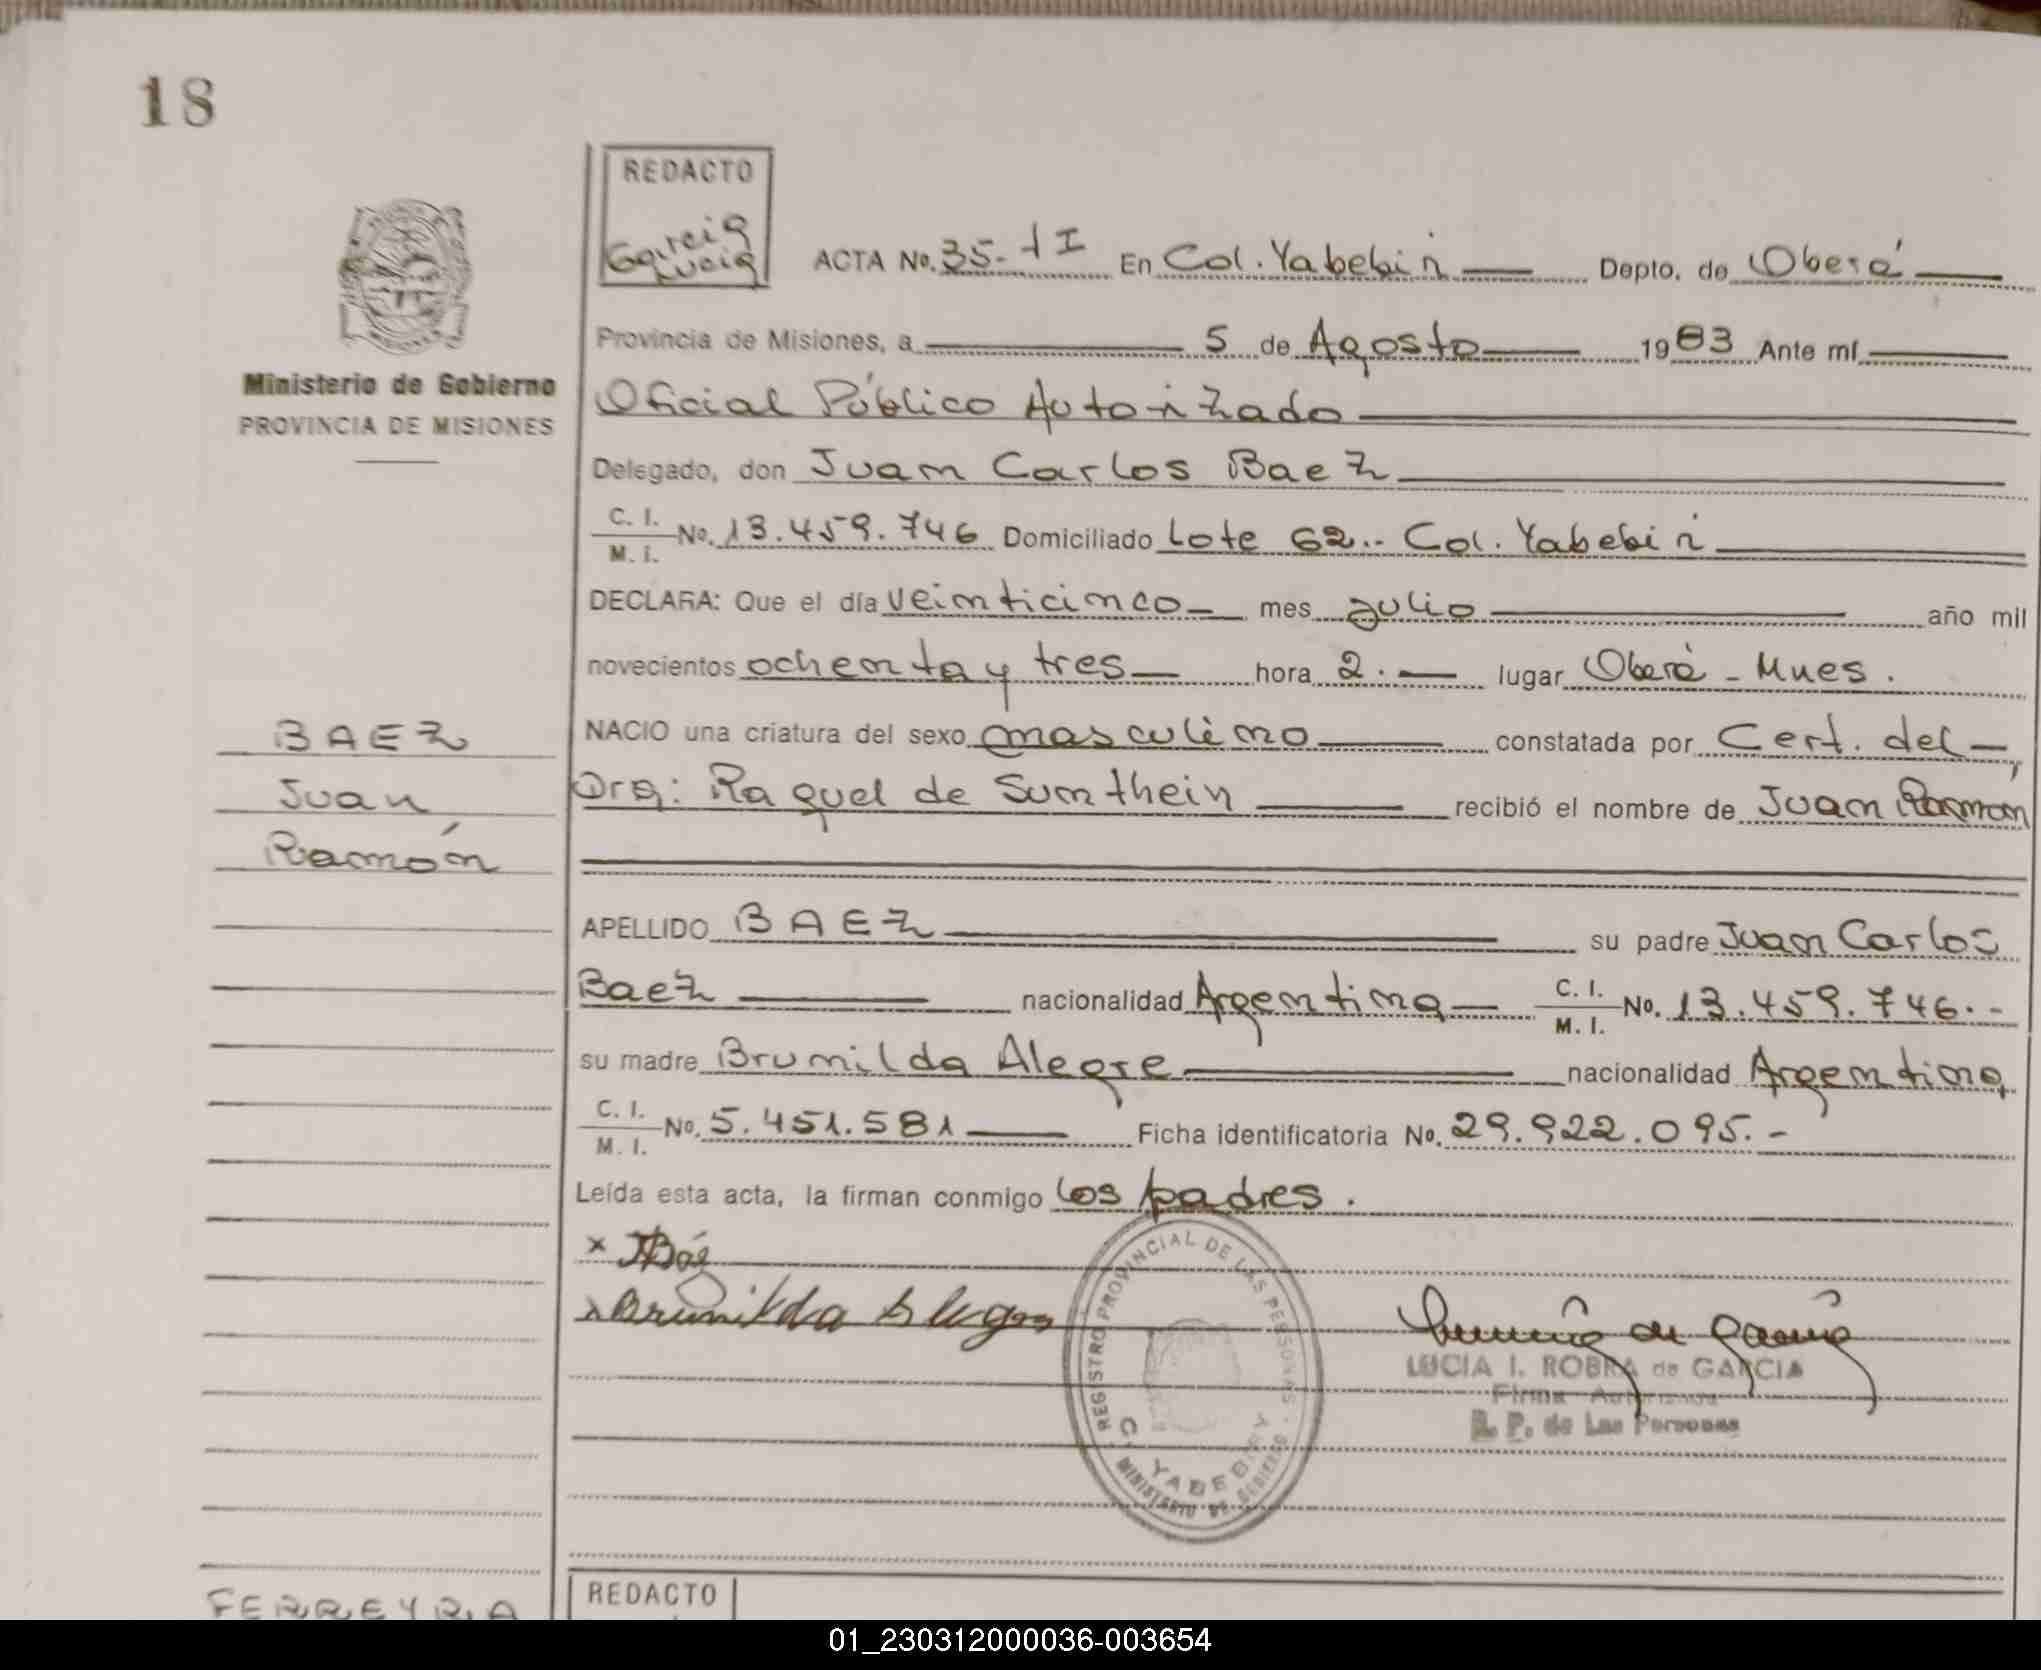 18
REDACTO
Garcia
Lucia
ACTA No. 35-1 I En Col. Yabebiri Depto. de Oberá
Provincia de Misiones, a 5 de Agosto 1983 Ante mí
Ministerio de Gobierno
PROVINCIA DE MISIONES
Oficial Público Autorizado
Delegado, don Juan Carlos Baez
C. I.
M. I. No. 13.459.746 Domiciliado Lote 62.- Col. Yabebiri
DECLARA: Que el día veinticinco mes julio año mil
novecientos ochenta y tres hora 2.- lugar Oberá - Mnes.
NACIO una criatura del sexo masculino constatada por Cert. del
Dra: Raquel de Sumthein recibió el nombre de Juan Ramón
BAEZ
Juan
Ramón
APELLIDO BAEZ su padre Juan Carlos
Baez nacionalidad Argentina C. I.
M. I. No. 13.459.746.-
su madre Brunilda Alegre nacionalidad Argentina
C. I.
M. I. No. 5.451.581 Ficha identificatoria No. 29.922.095.-
Leída esta acta, la firman conmigo los padres.
x
x Brunilda
REGISTRO PROVINCIAL DE LAS PERSONAS
C. YABEBIRY
MINISTERIO DE GOBIERNO
LUCIA I. ROBRA de GARCIA
Firma Autorizada
R. P. de Las Personas
FERREYRA
REDACTO
01_230312000036-003654